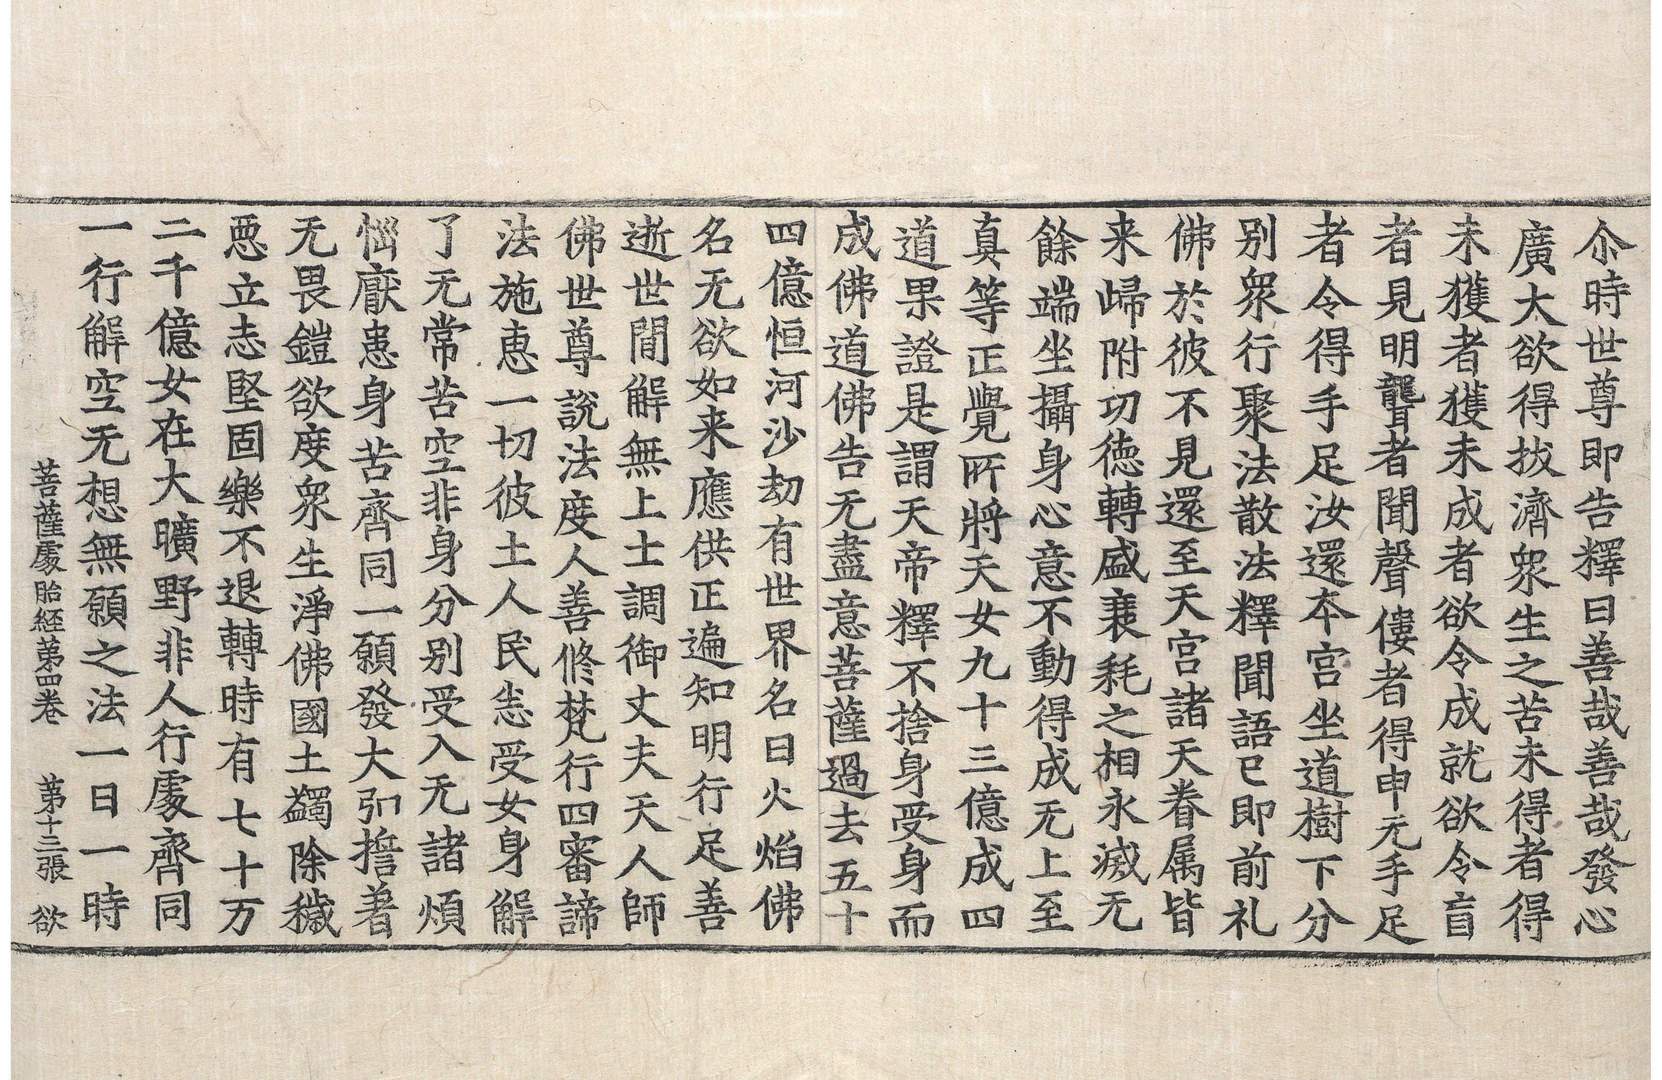 尒時世尊即告釋曰善哉善哉發心
廣大欲得拔濟衆生之苦未得者得
未獲者獲未成者欲令成就欲令盲
者見明聾者聞聲僂者得申无手足
者令得手足汝還本宮坐道樹下分
别衆行聚法散法釋聞語已即前礼
佛於彼不見還至天宮諸天眷属皆
来歸附功徳轉盛衰耗之相永滅无
餘端坐攝身心意不動得成无上至
真等正覺所將天女九十三億成四
道果證是謂天帝釋不捨身受身而
成佛道佛告无盡意菩薩過去五十
四億恒河沙劫有世界名曰火焰佛
名无欲如来應供正遍知明行足善
逝世間解無上士調御丈夫天人師
佛世尊說法度人善修梵行四審諦
法施恵一切彼土人民悉受女身解
了无常苦空非身分别受入无諸煩
惱厭患身苦齊同一願發大弘擔著
无畏鎧欲度衆生淨佛國土蠲除穢
惡立志堅固樂不退轉時有七十万
二千億女在大曠野非人行處齊同
一行解空无想無願之法一日一時
菩薩處胎経第四卷 第十三張 欲